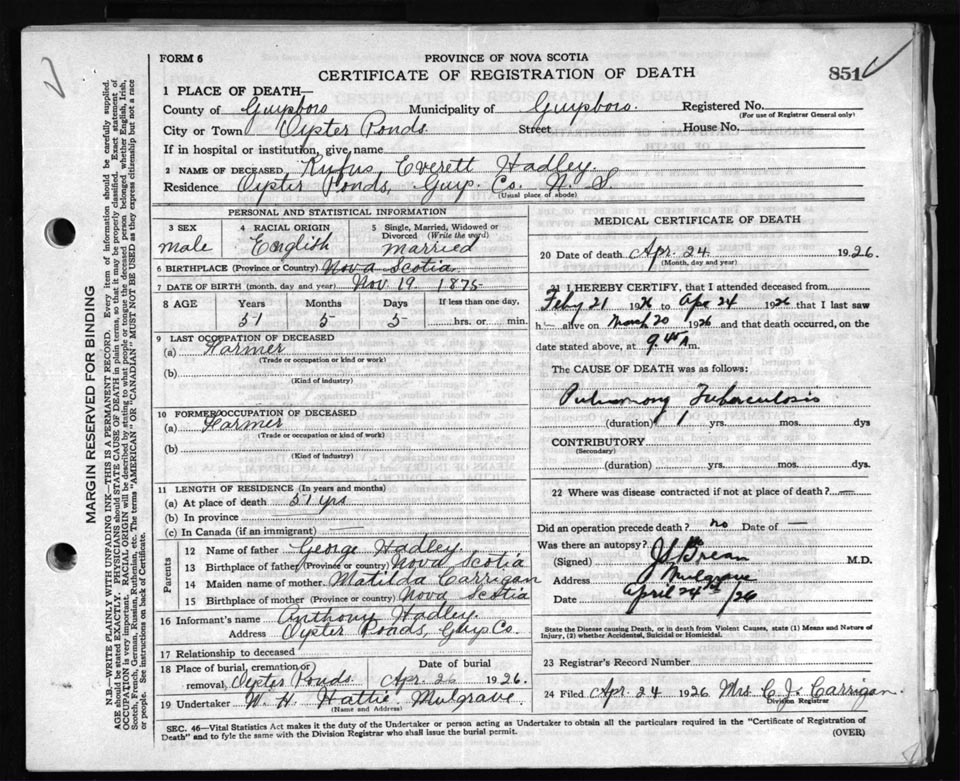 FORM 6
PROVINCE OF NOVA SCOTIA
CERTIFICATE OF REGISTRATION OF DEATH
851
1 PLACE OF DEATH—
County of Guysboro Municipality of Guysboro. Registered No.
(For use of Registrar General only)
City or Town Oyster Ponds. Street House No.
If in hospital or institution, give name
2 NAME OF DECEASED Rufus Everett Hadley.
Residence Oyster Ponds, Guys. Co. N. S.
(Usual place of abode)
PERSONAL AND STATISTICAL INFORMATION
3 SEX 4 RACIAL ORIGIN 5 Single, Married, Widowed or Divorced (Write the word)
male English married
6 BIRTHPLACE (Province or Country) Nova Scotia.
7 DATE OF BIRTH (month, day and year) Nov 19. 1875
8 AGE Years Months Days If less than one day,
51 5 5 hrs. or min.
9 LAST OCCUPATION OF DECEASED
(a) Farmer
(Trade or occupation or kind or work)
(b)
(Kind of industry)
10 FORMER OCCUPATION OF DECEASED
(a) Farmer
(Trade or occupation or kind of work)
(b)
(Kind of industry)
11 LENGTH OF RESIDENCE (In years and months)
(a) At place of death 51 yrs
(b) In province
(c) In Canada (if an immigrant)
Parents
12 Name of father George Hadley.
13 Birthplace of father (Province or country) Nova Scotia
14 Maiden name of mother Matilda Carrigan
15 Birthplace of mother (Province or country) Nova Scotia
16 Informant's name Anthony Hadley.
Address Oyster Ponds, Guys Co.
17 Relationship to deceased
18 Place of burial, cremation or removal, Oyster Ponds. Date of burial Apr. 26 1926.
19 Undertaker W. H. Hattie Mulgrave
(Name and Address)
MEDICAL CERTIFICATE OF DEATH
20 Date of death Apr. 24 1926.
(Month, day and year)
21 I HEREBY CERTIFY, that I attended deceased from
Feby 21 1926 to Apr 24 1926 that I last saw
h— alive on March 20 1926 and that death occurred, on
date stated above, at 9.45 A m.
The CAUSE OF DEATH was as follows:
Pulmonary Tuberculosis
(duration) 1 yrs. mos. dys
CONTRIBUTORY
(Secondary)
(duration) yrs. mos. dys.
22 Where was disease contracted if not at place of death? —
Did an operation precede death? no Date of —
Was there an autopsy? no
(Signed) M.D.
Address Mulgrave
Date April 24th /26
State the Disease causing Death, or in death from Violent Causes, state (1) Means and Nature of
Injury, (2) whether Accidental, Suicidal or Homicidal.
23 Registrar's Record Number
24 Filed Apr. 24 1926 Mrs C. J. Carrigan.
Division Registrar
SEC. 46—Vital Statistics Act makes it the duty of the Undertaker or person acting as Undertaker to obtain all the particulars required in the "Certificate of Registration of
Death" and to fyle the same with the Division Registrar who shall issue the burial permit.
(OVER)
MARGIN RESERVED FOR BINDING
N.B.—WRITE PLAINLY WITH UNFADING INK—THIS IS A PERMANENT RECORD. Every item of information should be carefully supplied.
AGE should be stated EXACTLY. PHYSICIANS should STATE CAUSE OF DEATH in plain terms, so that it may be properly classified. Exact statement of
OCCUPATION is very important. RACIAL ORIGIN will be described by stating to what people or tongue the deceased person belonged whether English, Irish,
Scotch, French, German, Russian, Ruthenian, etc. The terms "AMERICAN" or "CANADIAN" MUST NOT BE USED as they express citizenship but not a race
or people. See instructions on back of Certificate.